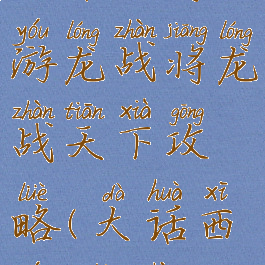 yóu lóng zhàn jiāng lóng
游龙战将龙
zhàn tiān xià gōng
战天下攻
lüè dà huà xī
略(大话西